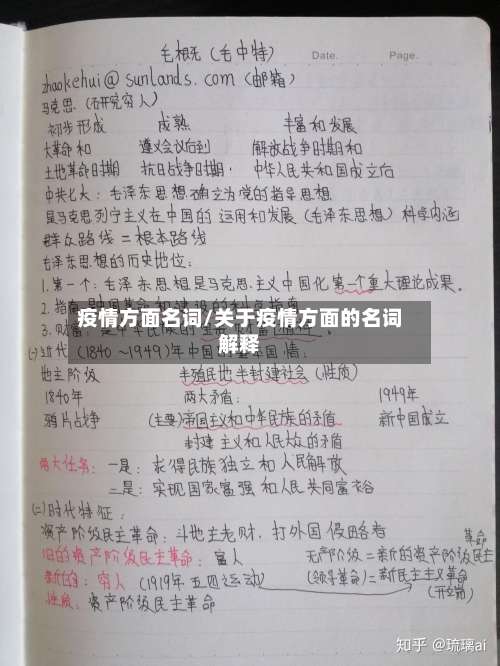 毛概无（毛中特） Date. Page.
zhaokehui@sunlands.com（邮箱）
马克思（研究穷人）
初步形成 成熟 丰富和发展
大革命和 遵义会议后到 解放战争时期和
土地革命日期 抗日战争日期. 中华人民共和国成立后
中共七大：毛泽东思想确立为党的指导思想
是马克思列宁主义在中国的运用和发展（毛泽东思想）科学内涵
群众路线＝根本路线
毛泽东思想的历史地位：
1.第一个：毛泽东思想是马克思主义中国化第一个重大理论成果。
2.指南
疫情方面名词/关于疫情方面的名词
解释
3.财富
㈠近代（1840～1949）年中国 国情：
地主阶级 半殖民地半封建社会（性质）
1840年 两大矛盾： 1949年
鸦片战争 （主要）帝国主义和中华民族的矛盾 新中国成立
封建主义和人民大众的矛盾
两大任务：一是：求得民族独立和人民解放
二是：实现国家富强和人民共同富裕
㈡时代特征：
资产阶级民主革命：斗地主老财，打外国侵略者 革命
旧的资产阶级民主革命：富人 无产阶级＝新的资产阶级民主
新的：穷人（1919年五四运动） （领导革命）＝新民主主义革命
性质：资产阶级民主革命
知乎 @琉璃ai